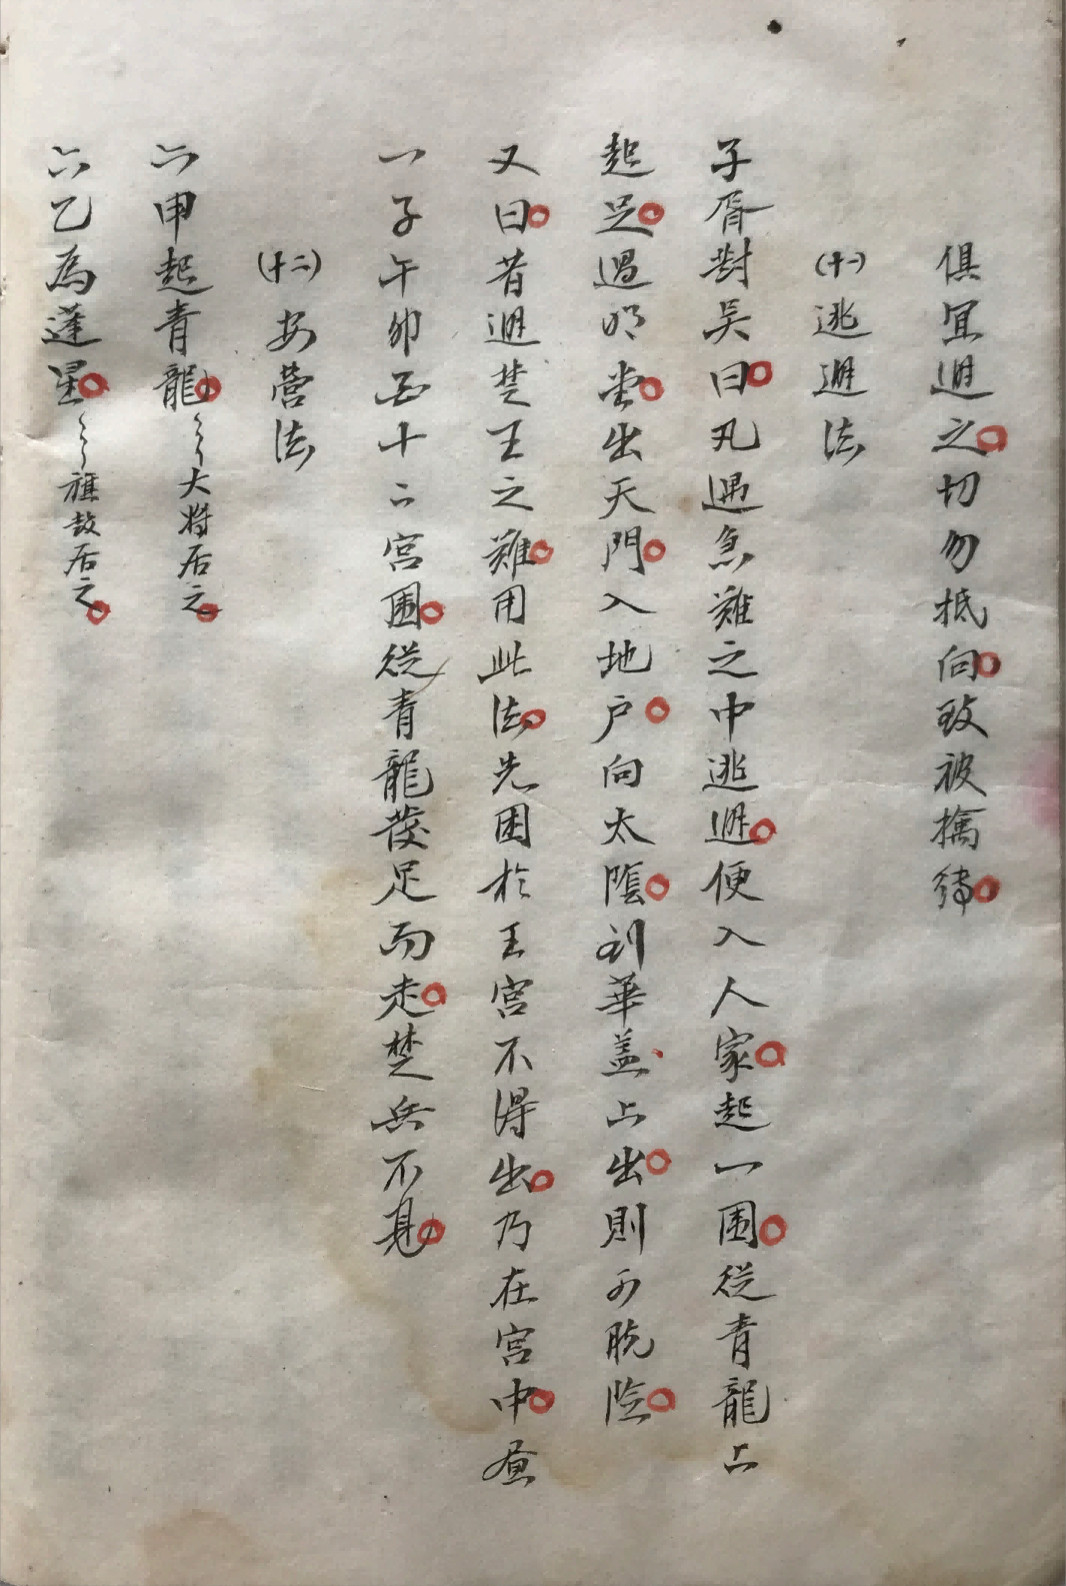 俱宜避之切勿抵向致被擒縛
(十一)逃避法
子胥對吴曰凡遇急難之中逃避便入人家起一围從青龍上
起足過明堂出天門入地户向太陰到華盖上出則可脱险
又曰昔避楚王之難用此法先困於王宫不得出乃在宫中画
一子午卯酉十二宫围從青龍發足而走楚兵不見
(十二)安营法
六甲起青龍 大将居之
六乙為蓬星 旗鼓居之